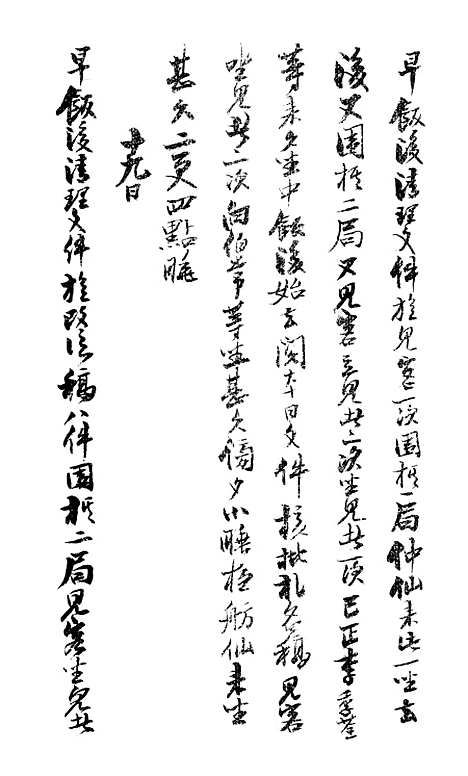 早飯後清理文件旋見客一次圍棋一局仲仙來此一坐去
後又圍棋二局又見客立見者二次坐見者一次已正李季荃
等來久坐中飯後始去閱本日文件核批札各稿見客
坐見者二次向伯常等坐甚久傍夕小睡極舫仙來坐
甚久二更四點睡
十九日
早飯後清理文件旋改信稿八件圍棋二局見客坐見者